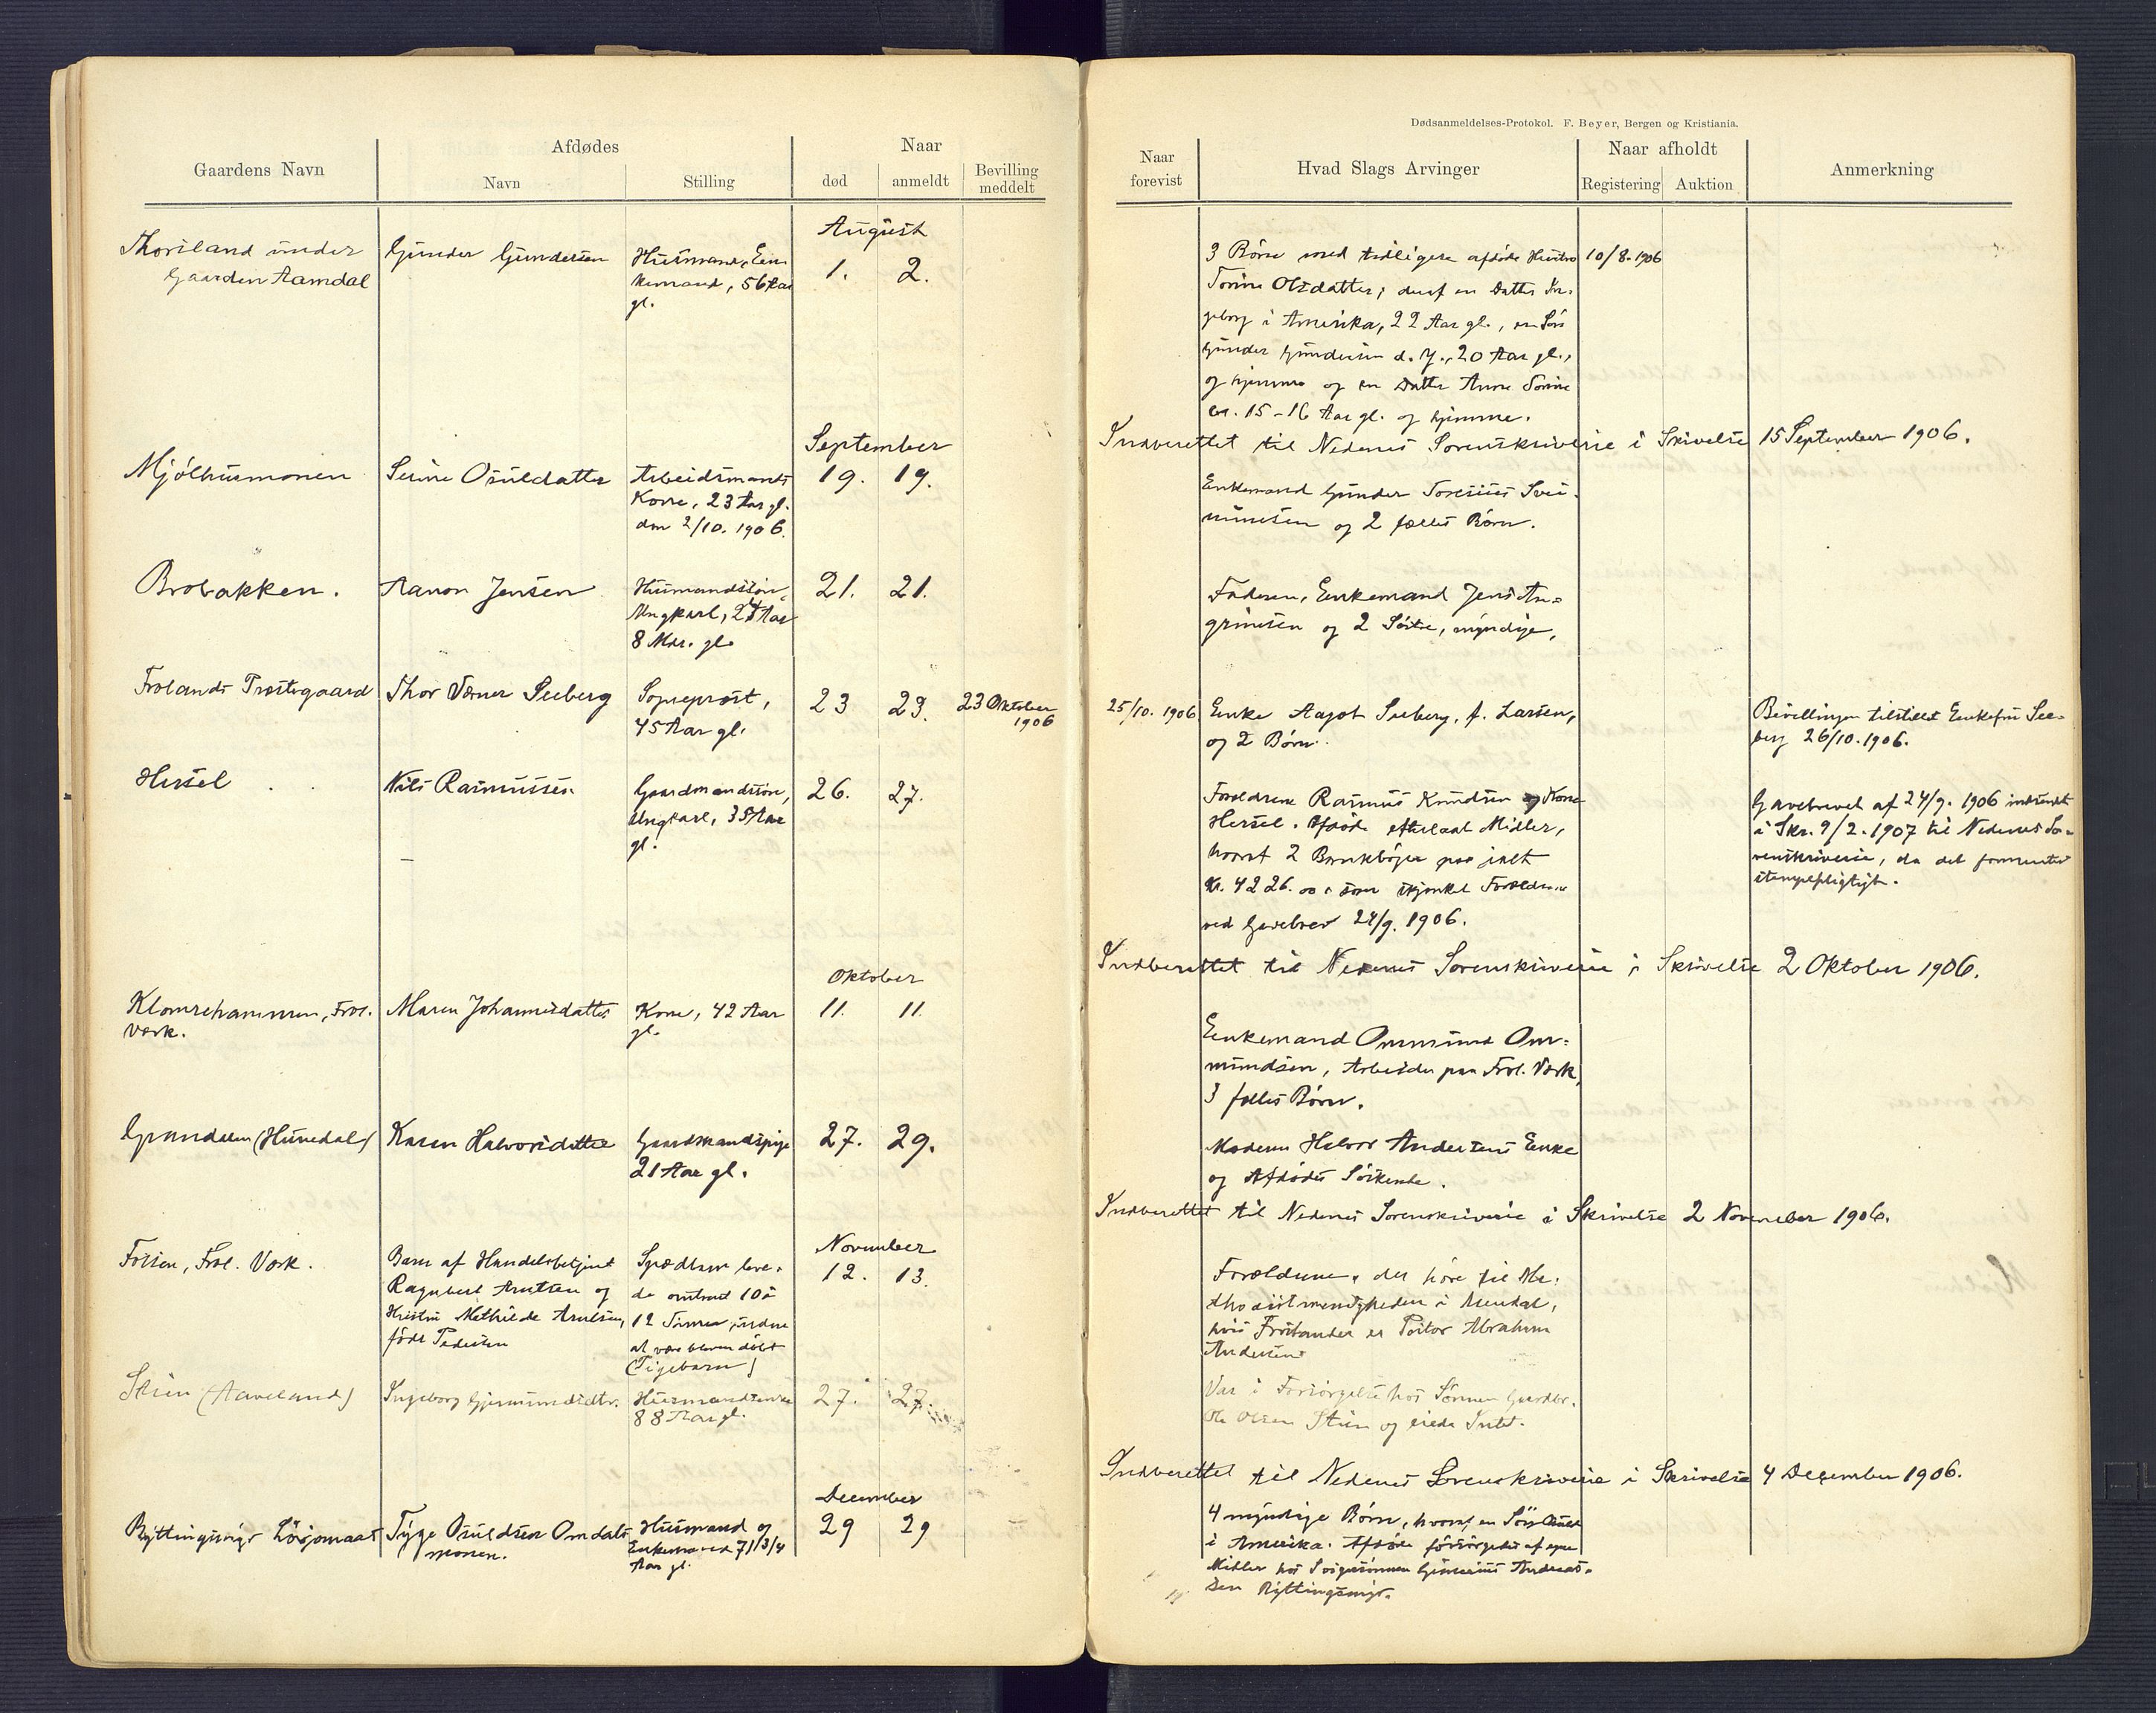 Dødsanmeldelses-Protokol. F. Beyer, Bergen og Kristiania.
Gaardens Navn
Afdødes
Navn
Stilling
Naar
død
anmeldt
Bevilling
meddelt
Naar
forevist
Hvad Slags Arvinger
Naar afholdt
Registering
Auktion
Anmerkning
August
under
Gaarden Aamdal
Gunder Gundersen
Husmand, En-
kemand, 56 Aar
gl.
1.
2.
3 Børn med tidligere afdøde Hustru
Torine Olsdatter; deraf en Datter In-
geborg i Amerika, 22 Aar gl., en Søn
Gunder Gundersen d. y., 20 Aar gl.,
og hjemme og en Datter Anne Torine
15-16 Aar gl. og hjemme.
10/8-1906
Indberettet til Nedenes Sorenskriverie i Skrivelse 15 September 1906.
September
Mjölhusmonen
Serine Osuldatter
Arbeidsmands
Kone, 23 Aar gl.
den 2/10. 1906.
19.
19.
Enkemand Gunder
og 2 fælles Børn.
Brobakken.
Aanon Jensen
Husmandssön,
Ungkarl, Aar
8 Mdr. gl.
21.
21.
Faderen, Enkemand Jens An=
grimsen og 2 Söstre, myndige,
Frolands Præstegaard
Thor Værner Seeberg
Sogneprest,
45 Aar gl.
23
23.
23 Oktober
1906
25/10. 1906
Enke Aagot Seeberg, f. Larsen,
og 2 Børn.
Bevillingen tilstillet Enkefru See-
berg 26/10.1906.
Hersel
Nils Rasmussen
Gaardmandssön,
Ungkarl, 35 Aar
gl.
26.
27.
Forældrene Rasmus Knudsen og Kone
Hersel. Afdöde efterlod Midler,
hvoraf 2 Bankböger paa ialt
Kr. 4226.00 som skjænket Forældrene
ved Gavebrev 24/9. 1906.
Gavebrevet af 24/9. 1906 indsendt
i Skr. 9/2.1907 til Nedenes So-
renskriverie, da det formentes
stempelpligtigt.
Indberettet til Nedenes Sorenskriverie i Skrivelse 2 Oktober 1906.
Oktober
Klomrehammen, Frol.
Værk.
Maren Johannesdatter
Kone, 42 Aar
gl.
11.
11.
Enkemand Ommund Om-
mundsen, Arbeider paa Frol. Værk,
3 fælles Børn.
Grundalen (Hunedal)
Karen Halvorsdatter
Gaardmandspige
21 Aar gl.
27.
29.
Moderen Halvor Andersens Enke
og Afdödes Söskende.
Indberettet til Nedenes Sorenskriverie i Skrivelse 2 November 1906.
November
Fossen, Frol. Værk.
Barn af Handelsbetjent
Ragnvart Arntsen og
Hustru Mathilde Arntsen,
født Pedersen
Spædbarn leve-
de omtrent 10 à
12 Timer, uden
at være bleven døbt
(Pigebarn)
12.
13.
Forældrene, der höre til Me-
thodistmenigheden i Arendal,
hvis Forstander er Pastor Abraham
Andersen
Stien (Aaveland)
Ingeborg Gjermundsdtr.
Husmandsenke
88 Aar gl.
27.
27.
Var i Forsörgelse hos Sönnen Gaardbr.
Ole Olsen Stien og eiede Intet.
Indberettet til Nedenes Sorenskriverie i Skrivelse 4 December 1906.
December
Tyge Osuldsen Omdals
monen.
Husmand og
Enkemand 71 3/4
Aar gl.
29
29
4 myndige Børn, hvoraf en Sön
i Amerika. Afdöde forsörgedes af egne
Midler hos Svigersönnen Andreas-
sen